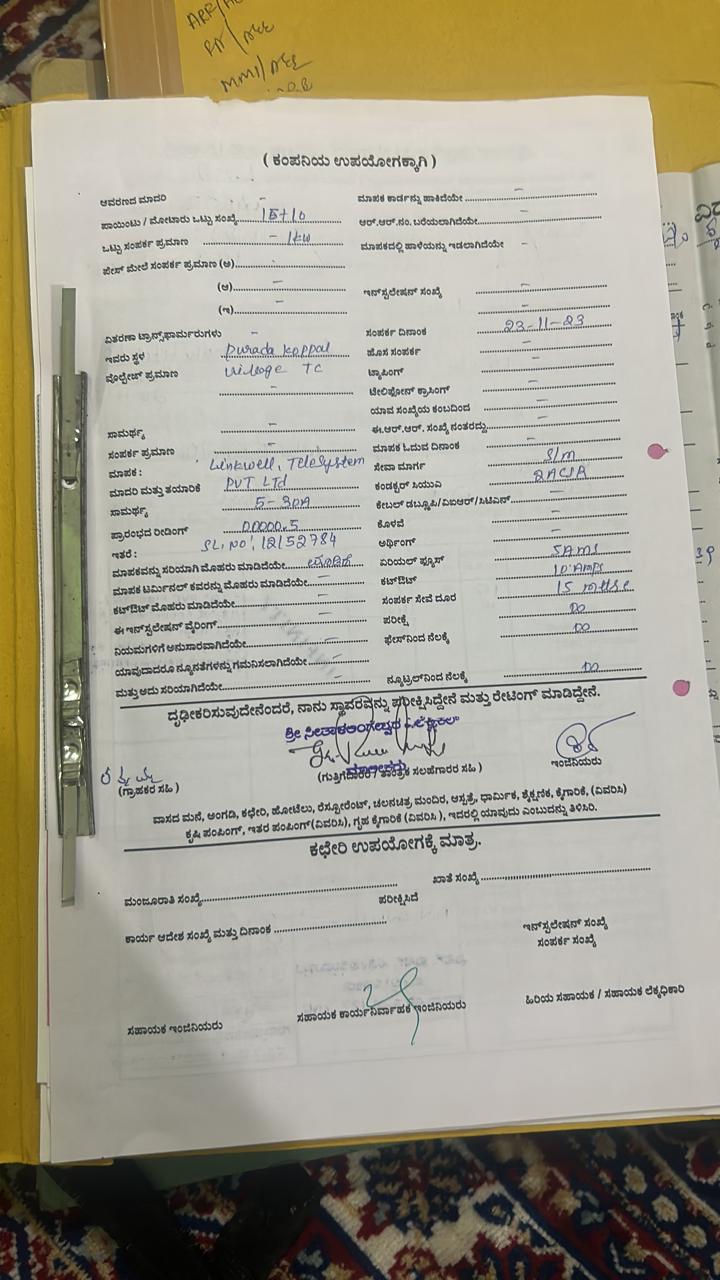 ARR/
RI/AEE
MMI/AEE
( ಕಂಪನಿಯ ಉಪಯೋಗಕ್ಕಾಗಿ )
ಆವರಣದ ಮಾದರಿ - ಮಾಪಕ ಕಾರ್ಡನ್ನು ಹಾಕಿದೆಯೇ -
ಪಾಯಿಂಟು / ಮೋಟಾರು ಒಟ್ಟು ಸಂಖ್ಯೆ ಆರ್.ಆರ್.ನಂ. ಬರೆಯಲಾಗಿದೆಯೇ -
ಒಟ್ಟು ಸಂಪರ್ಕ ಪ್ರಮಾಣ - 1kw ಮಾಪಕದಲ್ಲಿ ಹಾಳೆಯನ್ನು ಇಡಲಾಗಿದೆಯೇ -
ಫೇಸ್ ಮೇಲೆ ಸಂಪರ್ಕ ಪ್ರಮಾಣ (ಅ)
(ಆ) - ಇನ್‌ಸ್ಟಲೇಷನ್ ಸಂಖ್ಯೆ -
(ಇ) - -
ವಿತರಣಾ ಟ್ರಾನ್ಸ್‌ಫಾರ್ಮರುಗಳು - ಸಂಪರ್ಕ ದಿನಾಂಕ 23-11-23
ಇವರು ಸ್ಥಳ Durada koppal ಹೊಸ ಸಂಪರ್ಕ -
ವೋಲ್ಟೇಜ್ ಪ್ರಮಾಣ village TC ಟ್ಯಾಪಿಂಗ್ -
- ಟೆಲಿಫೋನ್ ಕ್ರಾಸಿಂಗ್ -
ಯಾವ ಸಂಖ್ಯೆಯ ಕಂಬದಿಂದ -
ಸಾಮರ್ಥ್ಯ - ಈ.ಆರ್.ಆರ್. ಸಂಖ್ಯೆ ನಂತರದ್ದು -
ಸಂಪರ್ಕ ಪ್ರಮಾಣ - ಮಾಪಕ ಓದುವ ದಿನಾಂಕ -
ಮಾಪಕ : Linkwell, Telesystem ಸೇವಾ ಮಾರ್ಗ S/m
ಮಾದರಿ ಮತ್ತು ತಯಾರಿಕೆ PVT Ltd ಕಂಡಕ್ಟರ್ ಸಿಯುವಿ
ಸಾಮರ್ಥ್ಯ 5-30A ಕೇಬಲ್ ಡಬ್ಲೂಪಿ/ಎಐಆರ್/ಸಿಟಿಎಸ್ -
ಪ್ರಾರಂಭದ ರೀಡಿಂಗ್ 00000.5 ಕೊಳವೆ -
ಇತರೆ : SL.NO: 12152784 ಅರ್ಥಿಂಗ್ -
ಮಾಪಕವನ್ನು ಸರಿಯಾಗಿ ಮೊಹರು ಮಾಡಿದೆಯೇ ಏರಿಯಲ್ ಫ್ಯೂಸ್ 5Ams
ಮಾಪಕ ಟರ್ಮಿನಲ್ ಕವರನ್ನು ಮೊಹರು ಮಾಡಿದೆಯೇ - ಕಟ್‌ಔಟ್ 10 Amps
ಕಟ್‌ಔಟ್ ಮೊಹರು ಮಾಡಿದೆಯೇ - ಸಂಪರ್ಕ ಸೇವೆ ದೂರ 15
ಈ ಇನ್‌ಸ್ಟಲೇಷನ್ ವೈರಿಂಗ್ - ಪರೀಕ್ಷೆ DO
ನಿಯಮಗಳಿಗೆ ಅನುಸಾರವಾಗಿದೆಯೇ - ಫೇಸ್‌ನಿಂದ ನೆಲಕ್ಕೆ DO
ಯಾವುದಾದರೂ ನ್ಯೂನತೆಗಳನ್ನು ಗಮನಿಸಲಾಗಿದೆಯೇ -
ಮತ್ತು ಅದು ಸರಿಯಾಗಿದೆಯೇ - ನ್ಯೂಟ್ರಲ್‌ನಿಂದ ನೆಲಕ್ಕೆ DO
ದೃಢೀಕರಿಸುವುದೇನೆಂದರೆ, ನಾನು ಸ್ಥಾವರವನ್ನು ಪರೀಕ್ಷಿಸಿದ್ದೇನೆ ಮತ್ತು ರೇಟಿಂಗ್ ಮಾಡಿದ್ದೇನೆ.
ಮಾಲೀಕರು
(ಗ್ರಾಹಕರ ಸಹಿ ) (ಗುತ್ತಿಗೆದಾರರ / ತಾಂತ್ರಿಕ ಸಲಹೆಗಾರರ ಸಹಿ ) ಇಂಜಿನಿಯರು
ವಾಸದ ಮನೆ, ಅಂಗಡಿ, ಕಛೇರಿ, ಹೋಟೆಲು, ರೆಸ್ಟೋರೆಂಟ್, ಚಲನಚಿತ್ರ ಮಂದಿರ, ಆಸ್ಪತ್ರೆ, ಧಾರ್ಮಿಕ, ಶೈಕ್ಷಣಿಕ, ಕೈಗಾರಿಕೆ, (ವಿವರಿಸಿ)
ಕೃಷಿ ಪಂಪಿಂಗ್, ಇತರ ಪಂಪಿಂಗ್(ವಿವರಿಸಿ), ಗೃಹ ಕೈಗಾರಿಕೆ (ವಿವರಿಸಿ ), ಇದರಲ್ಲಿ ಯಾವುದು ಎಂಬುದನ್ನು ತಿಳಿಸಿರಿ.
ಕಛೇರಿ ಉಪಯೋಗಕ್ಕೆ ಮಾತ್ರ.
ಮಂಜೂರಾತಿ ಸಂಖ್ಯೆ ಖಾತೆ ಸಂಖ್ಯೆ
ಪರೀಕ್ಷಿಸಿದೆ
ಕಾರ್ಯ ಆದೇಶ ಸಂಖ್ಯೆ ಮತ್ತು ದಿನಾಂಕ ಇನ್‌ಸ್ಟಲೇಷನ್ ಸಂಖ್ಯೆ
ಸಂಪರ್ಕ ಸಂಖ್ಯೆ
ಸಹಾಯಕ ಇಂಜಿನಿಯರು ಸಹಾಯಕ ಕಾರ್ಯನಿರ್ವಾಹಕ ಇಂಜಿನಿಯರು ಹಿರಿಯ ಸಹಾಯಕ / ಸಹಾಯಕ ಲೆಕ್ಕಧಿಕಾರಿ